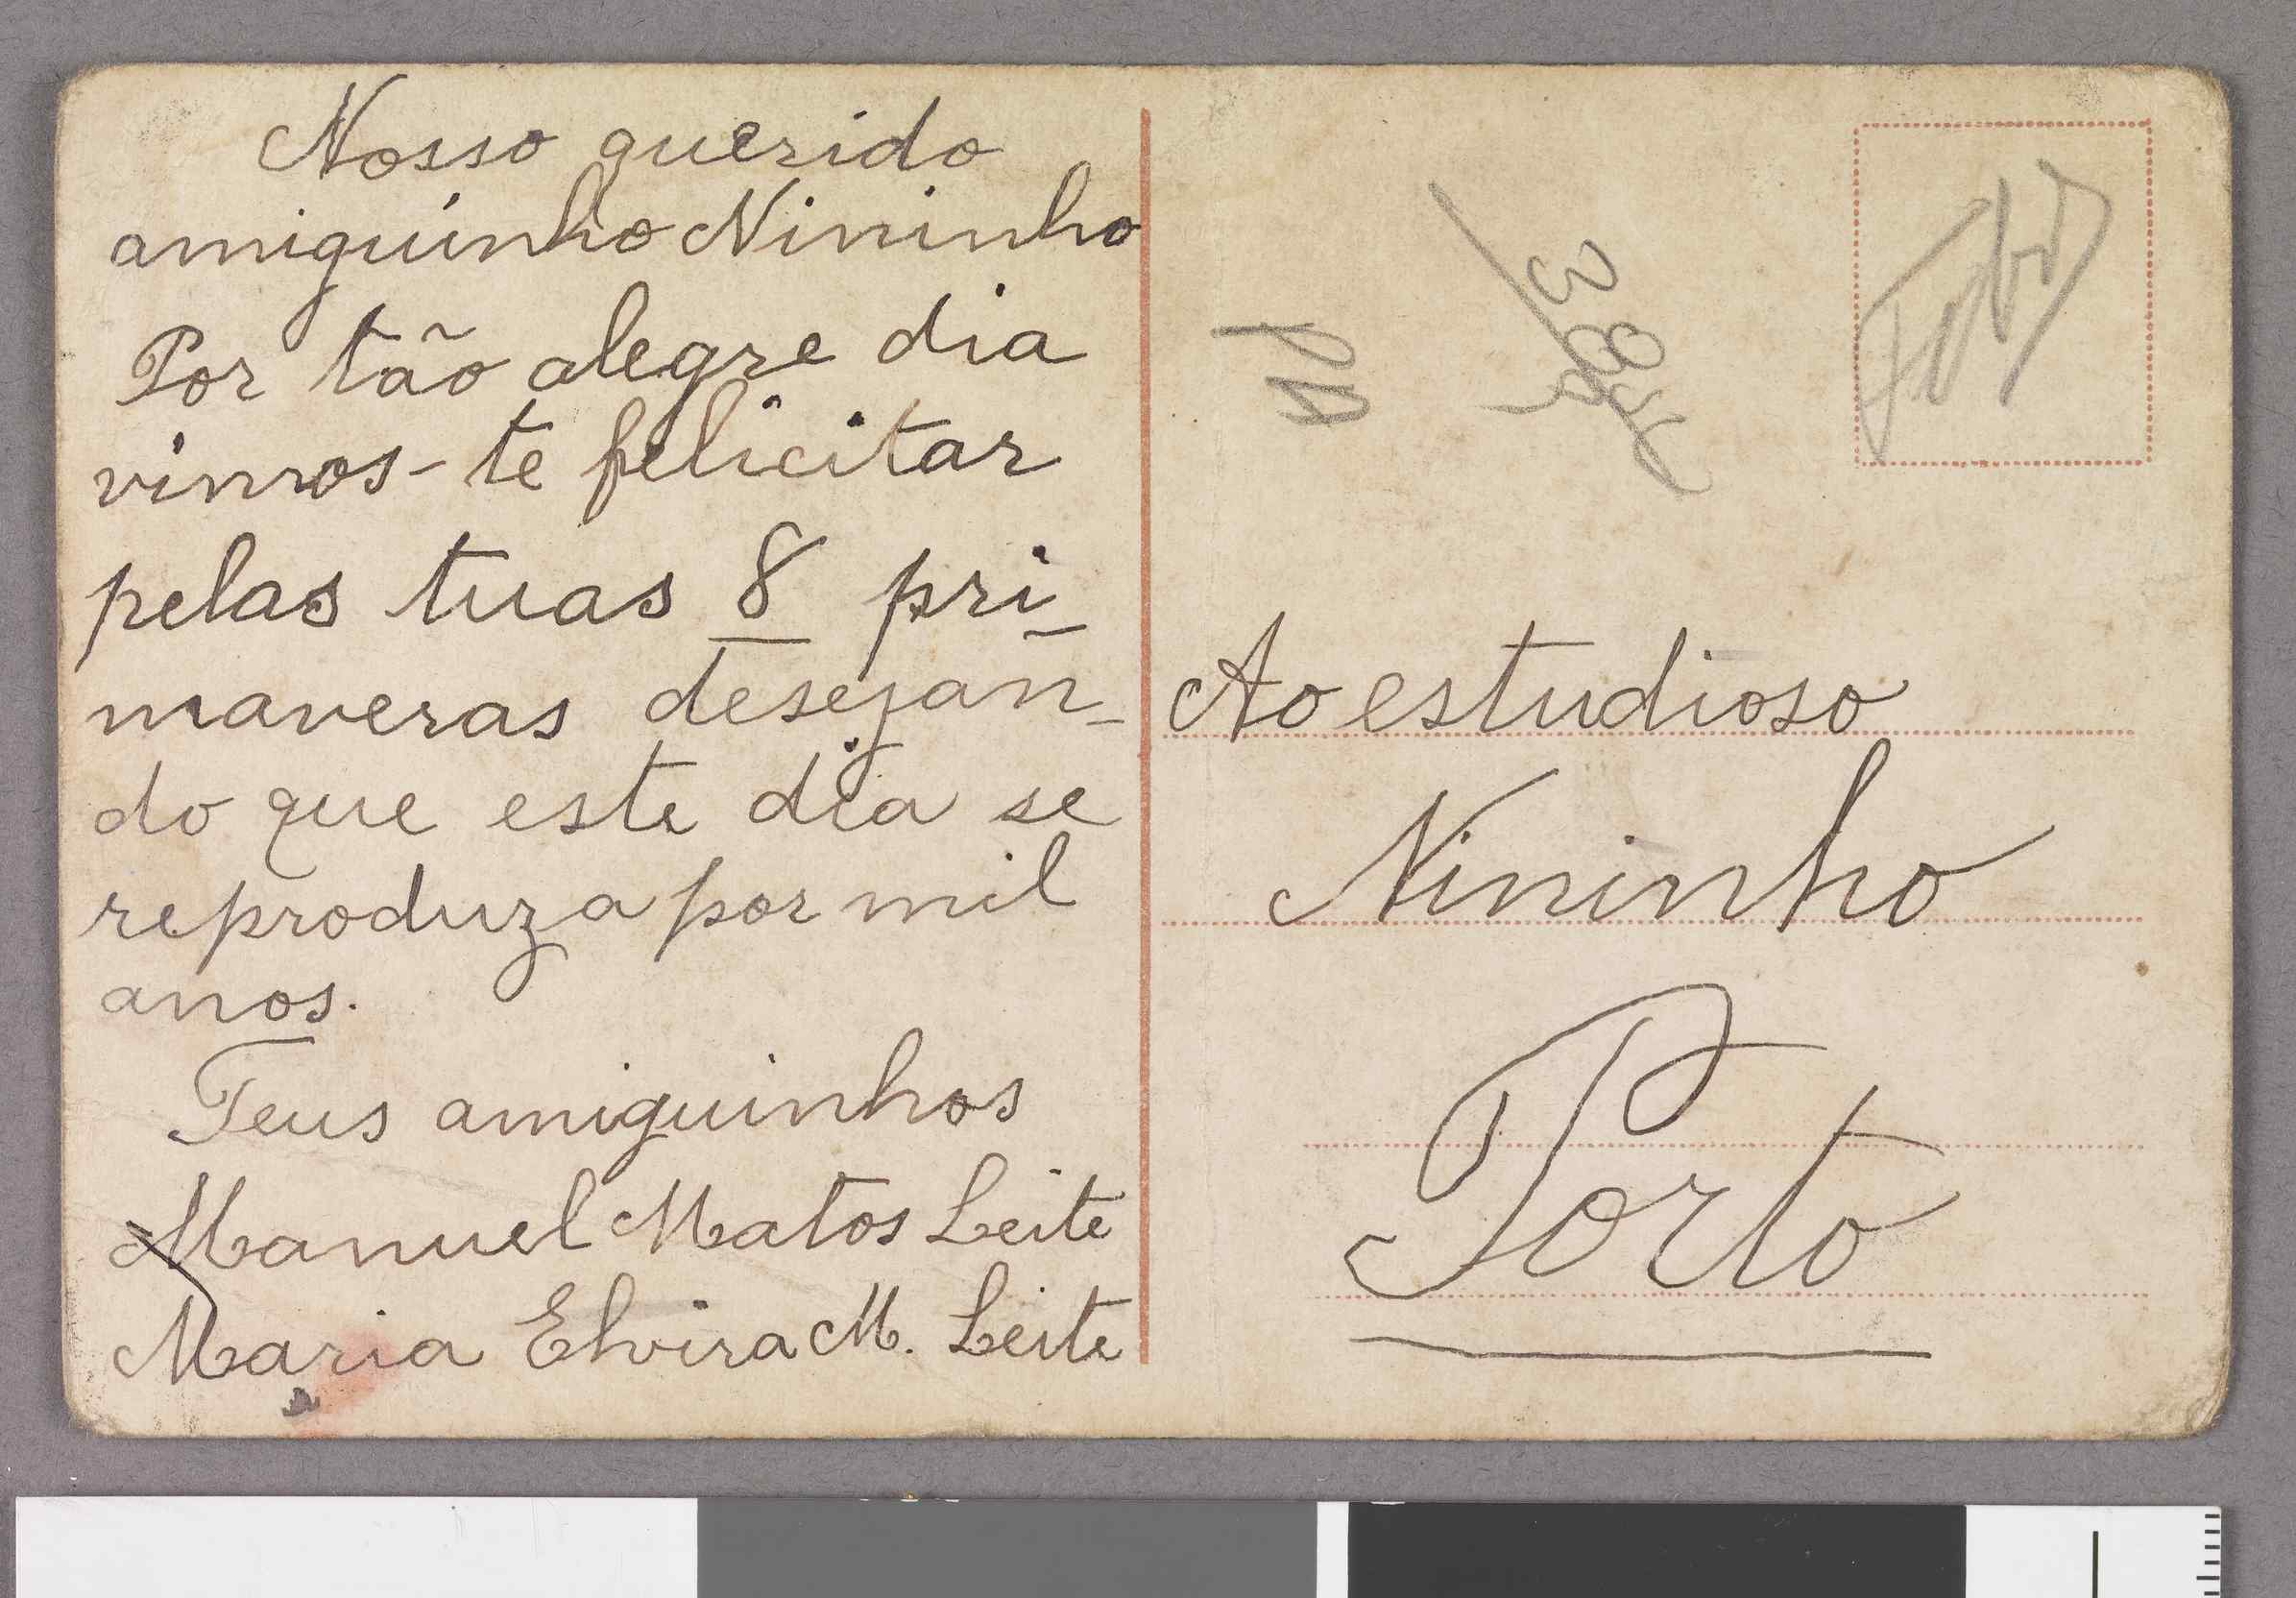 Nosso querido
amiguinho Nininho
Por tão alegre dia
vimos-te felicitar
pelas tuas 8 pri-
maveras desejan-
do que este dia se
reproduza por mil
anos.
Teus amiguinhos
Manuel Matos Leite
Maria Elvira M. Leite
Ao estudioso
Nininho
Porto